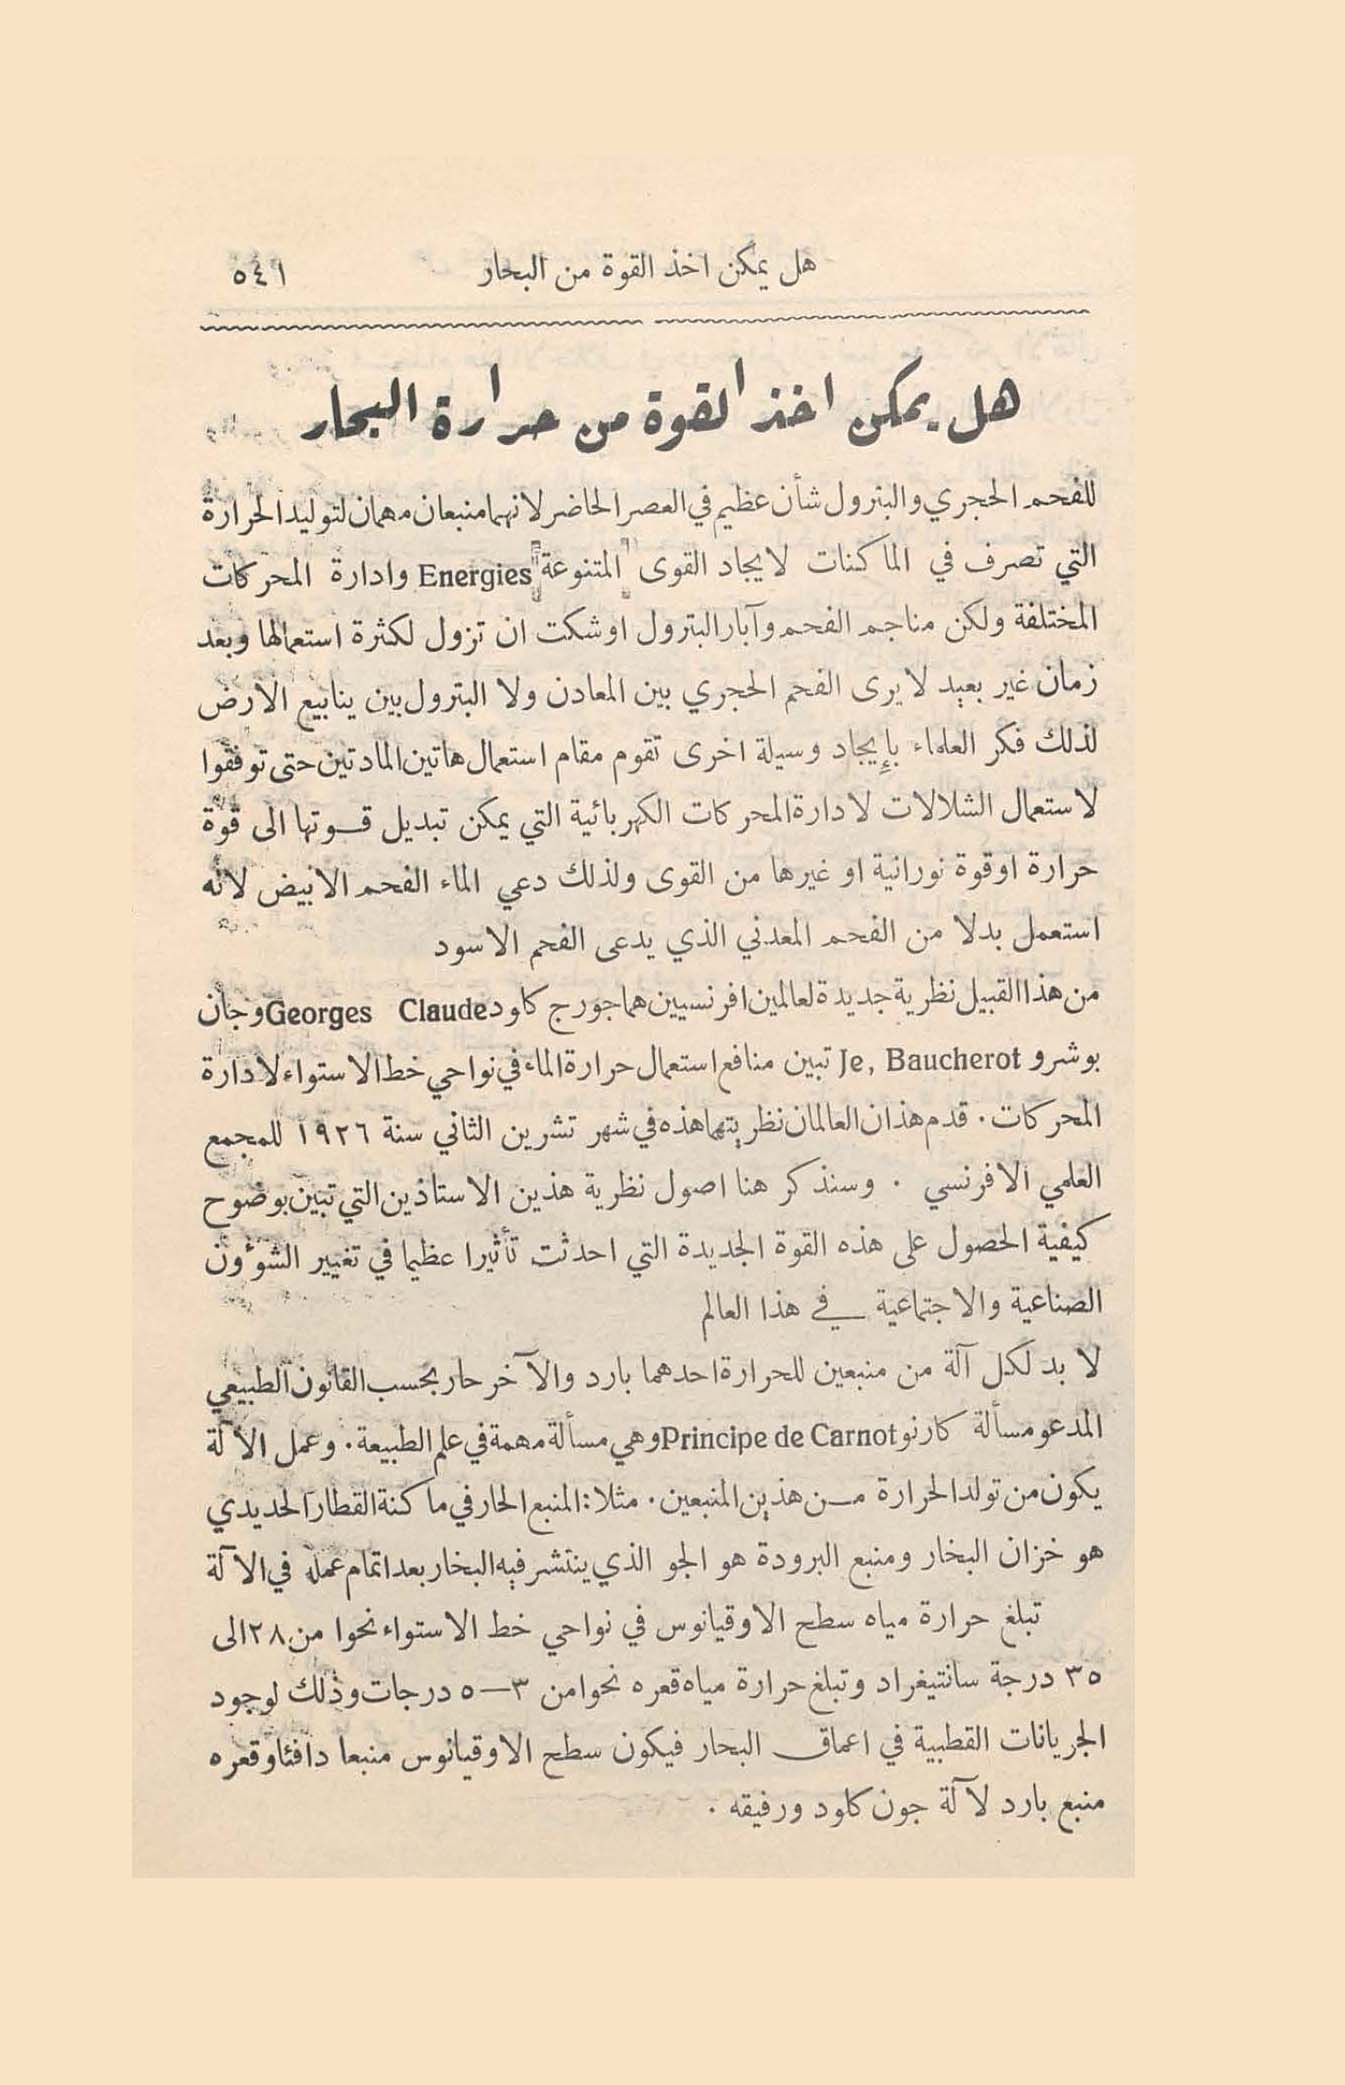 هل يمكن اخذ القوة من البحار ٥٤١
هل يمكن اخذ القوة من حرارة البحار
للفحم الحجري والبترول شأن عظيم في العصر الحاضر لانهما منبعان مهمان لتوليد الحرارة
التي تصرف في الماكنات لايجاد القوى المتنوعة Energies وادارة المحركات
المختلفة ولكن مناجم الفحم وآبار البترول اوشكت ان تزول لكثرة استعمالها وبعد
زمان غير بعيد لا يرى الفحم الحجري بين المعادن ولا البترول بين ينابيع الارض
لذلك فكر العلماء بإيجاد وسيلة اخرى تقوم مقام استعمال هاتين المادتين حتى توفقوا
لاستعمال الشلالات لادارة المحركات الكهربائية التي يمكن تبديل قوتها الى قوة
حرارة او قوة نورانية او غيرها من القوى ولذلك دعي الماء الفحم الابيض لانه
استعمل بدلا من الفحم المعدني الذي يدعى الفحم الاسود
من هذا القبيل نظرية جديدة لعالمين افرنسيين هما جورج كلود Georges Claude وجان
بوشرو Je, Baucherot تبين منافع استعمال حرارة الماء في نواحي خط الاستواء لادارة
المحركات. قدم هذان العالمان نظريتهما هذه في شهر تشرين الثاني سنة ١٩٢٦ للمجمع
العلمي الافرنسي . وسنذكر هنا اصول نظرية هذين الاستاذين التي تبين بوضوح
كيفية الحصول على هذه القوة الجديدة التي احدثت تأثيرا عظيما في تغيير الشؤون
الصناعية والاجتماعية في هذا العالم
لا بد لكل آلة من منبعين للحرارة احدهما بارد والآخر حار بحسب القانون الطبيعي
المدعو مسألة كارنو Principe de Carnot وهي مسألة مهمة في علم الطبيعة. وعمل الآلة
يكون من تولد الحرارة من هذين المنبعين. مثلا: المنبع الحار في ماكنة القطار الحديدي
هو خزان البخار ومنبع البرودة هو الجو الذي ينتشر فيه البخار بعد اتمام عمله في الآلة
تبلغ حرارة مياه سطح الاوقيانوس في نواحي خط الاستواء نحوا من ٢٨ الى
٣٥ درجة سانتيغراد وتبلغ حرارة مياه قعره نحوا من ٣—٥ درجات وذلك لوجود
الجريانات القطبية في اعماق البحار فيكون سطح الاوقيانوس منبعا دافئا وقعره
منبع بارد لآلة جون كلود ورفيقه .